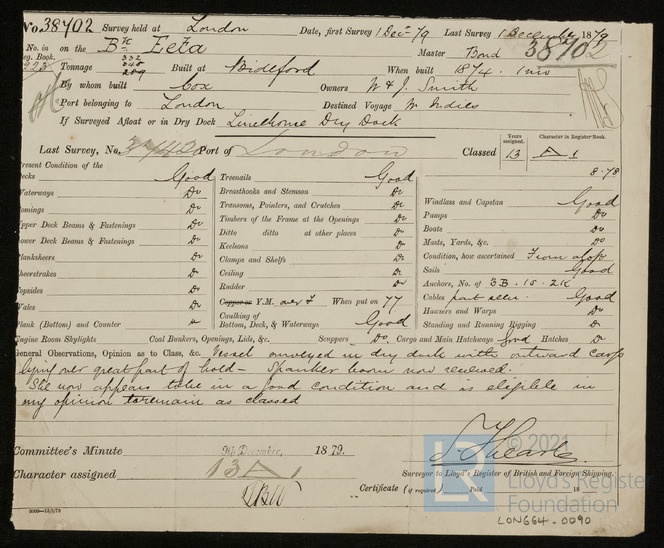 No. 38702 Survey held at London Date, first Survey 1 Decr 79 Last Survey 1 December 1879
No. in on the Bk Zeta Master Bond 38702
Reg. Book. 332
223 Tonnage 289 Built at Bideford When built 1874. 1 mo
By whom built Cox Owners W & J. Smith
Port belonging to London Destined Voyage W Indies
If Surveyed Afloat or in Dry Dock Limehouse Dry Dock
Last Survey, No. Port of London Classed Years assigned. 13 Character in Register Book. A 1
8-78
Present Condition of the
Decks Good
Waterways Do
Comings Do
Upper Deck Beams & Fastenings Do
Lower Deck Beams & Fastenings Do
Planksheers Do
Sheerstrakes Do
Topsides Do
Wales Do
Plank (Bottom) and Counter Do
Treenails Good
Breasthooks and Stemson Do
Transoms, Pointers, and Crutches Do
Timbers of the Frame at the Openings Do
Ditto ditto at other places Do
Keelsons Do
Clamps and Shelfs Do
Ceiling Do
Rudder Do
Copper or Y.M. over F When put on 77
Caulking of Bottom, Deck, & Waterways Good
Windlass and Capstan Good
Pumps Do
Boats Do
Masts, Yards, &c. Do
Condition, how ascertained From aloft
Sails Good
Anchors, No. of 3B. 1S. 2K
Cables part seen Good
Hawsers and Warps Do
Standing and Running Rigging Do
Engine Room Skylights Coal Bunkers, Openings, Lids, &c. Scuppers Do. Cargo and Main Hatchways Good Hatches Do
General Observations, Opinion as to Class, &c. Vessel surveyed in dry dock with outward cargo
lying over great part of hold — Spanker boom now renewed.
She now appears to be in a good condition and is eligible in
my opinion to remain as classed
Committee's Minute 9th December, 1879.
Character assigned 13 A 1
Surveyor to Lloyd's Register of British and Foreign Shipping.
Certificate (if required) Paid 18
5000—13/5/78
© 2021
LR Lloyd's Register
Foundation
LON664-0090